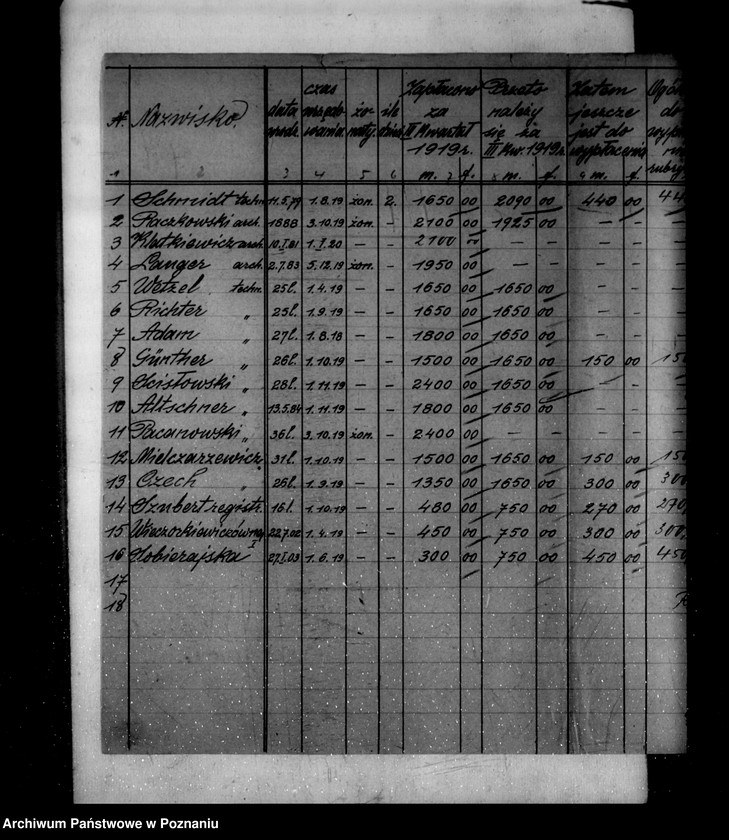 № Nazwisko. data urodz. czas urzędowania żonaty. ile dzieci Zapłacono za II Kwartał 1919 r. Przeto należy się za III Kw. 1919 r. Zatem jeszcze jest do wypłacenia
1 2 3 4 5 6 m. 7 f. 8 m. f. 9 m. f.
1 Schmidt techn. 11.5.79 1.8.19 żon. 2. 1650 00 2090 00 440 00 44
2 Raczkowski arch. 1888 3.10.19 żon. – 2100 00 1925 00 – –
3 Klatkiewicz arch. 10.I.81 1.I.20 – – 2100 00 – – – –
4 Langer arch. 2.7.83 5.12.19 żon. – 1950 00 – – – –
5 Wetzel techn. 25l. 1.4.19 – – 1650 00 1650 00 – –
6 Richter „ 25l. 1.9.19 – – 1650 00 1650 00 – –
7 Adam „ 27l. 1.8.18 – – 1800 00 1650 00 – –
8 Günther „ 26l. 1.10.19 – – 1500 00 1650 00 150 00 150
9 Scisłowski „ 28l. 1.11.19 – – 2400 00 1650 00 – –
10 Altschner „ 13.5.84 1.11.19 – – 1800 00 1650 00 – –
11 Pacanowski „ 36l. 3.10.19 żon. – 2400 00 – – – –
12 Mielczarzewicz „ 31l. 1.10.19 – – 1500 00 1650 00 150 00 150
13 Czech „ 26l. 1.9.19 – – 1350 00 1650 00 300 00 300
14 Sznbert registr. 16l. 1.10.19 – – 480 00 750 00 270 00 270
15 Wieczorkiewiczówna „ 22.7.02 1.4.19 – – 450 00 750 00 300 00 300
16 Sobierajska 27.I.03 1.6.19 – – 300 00 750 00 450 00 450
17
18
Archiwum Państwowe w Poznaniu